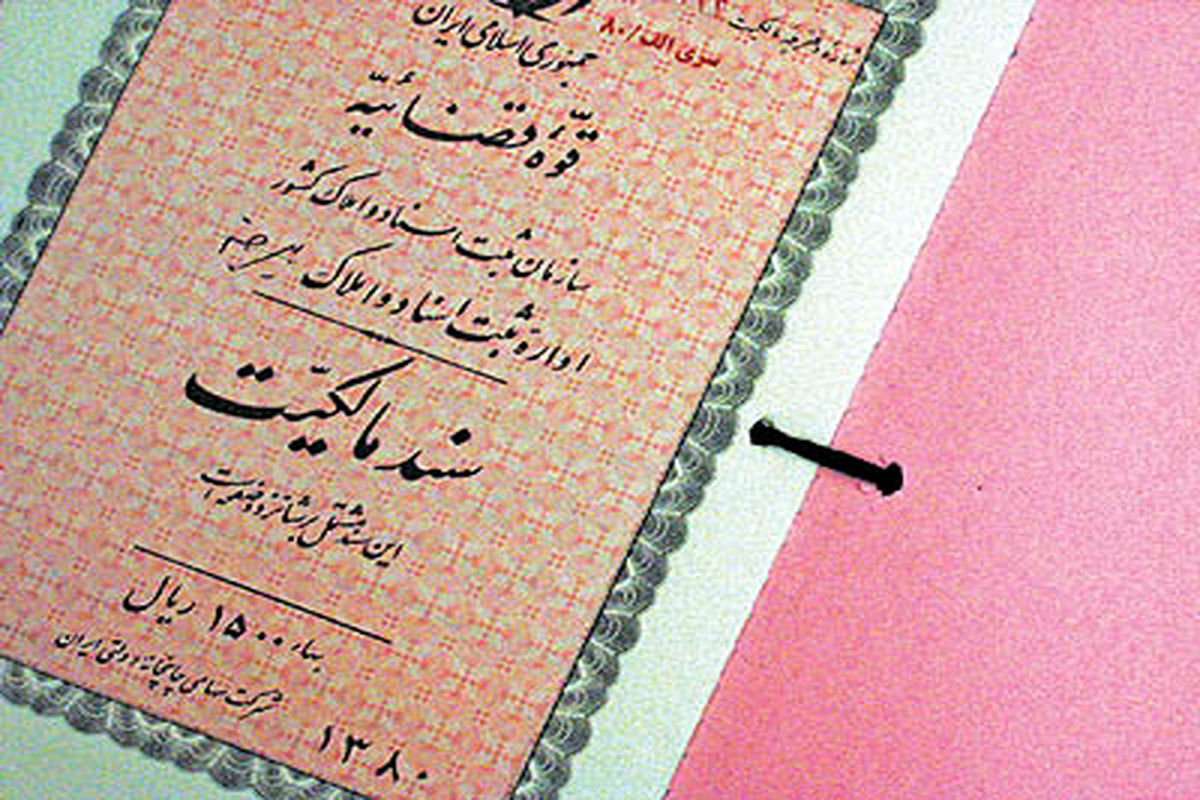 شماره دفترچه مالکیت
سری الف/۸۰
جمهوری اسلامی ایران
قوّهٔ قضائیّه
سازمان ثبت اسناد و املاک کشور
ادارهٔ ثبت اسناد و املاک بیرجند
سند مالکیّت
این سند مشتمل بر شانزده صفحه است
بهاء ۱۵۰۰ ریال
شرکت سهامی چاپخانه دولتی ایران
۱۳۸۰